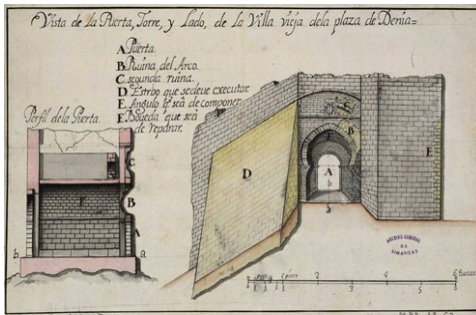 Vista de la Puerta, Torre, y Lado, de la Villa vieja dela plaza de Denia=
A Puerta.
B Ruina del Arco.
C segunda ruina.
D Estrbo que sedeve executar
E Angulo q̃ se à de componer
F Bobeda que se à
de repdrar.
Perfil de la Puerta.
C
B
A
F
b
a
D
C
B
A
b
a
E
ARCHIVO GENERAL
DE
SIMANCAS
1
2
3
4
5